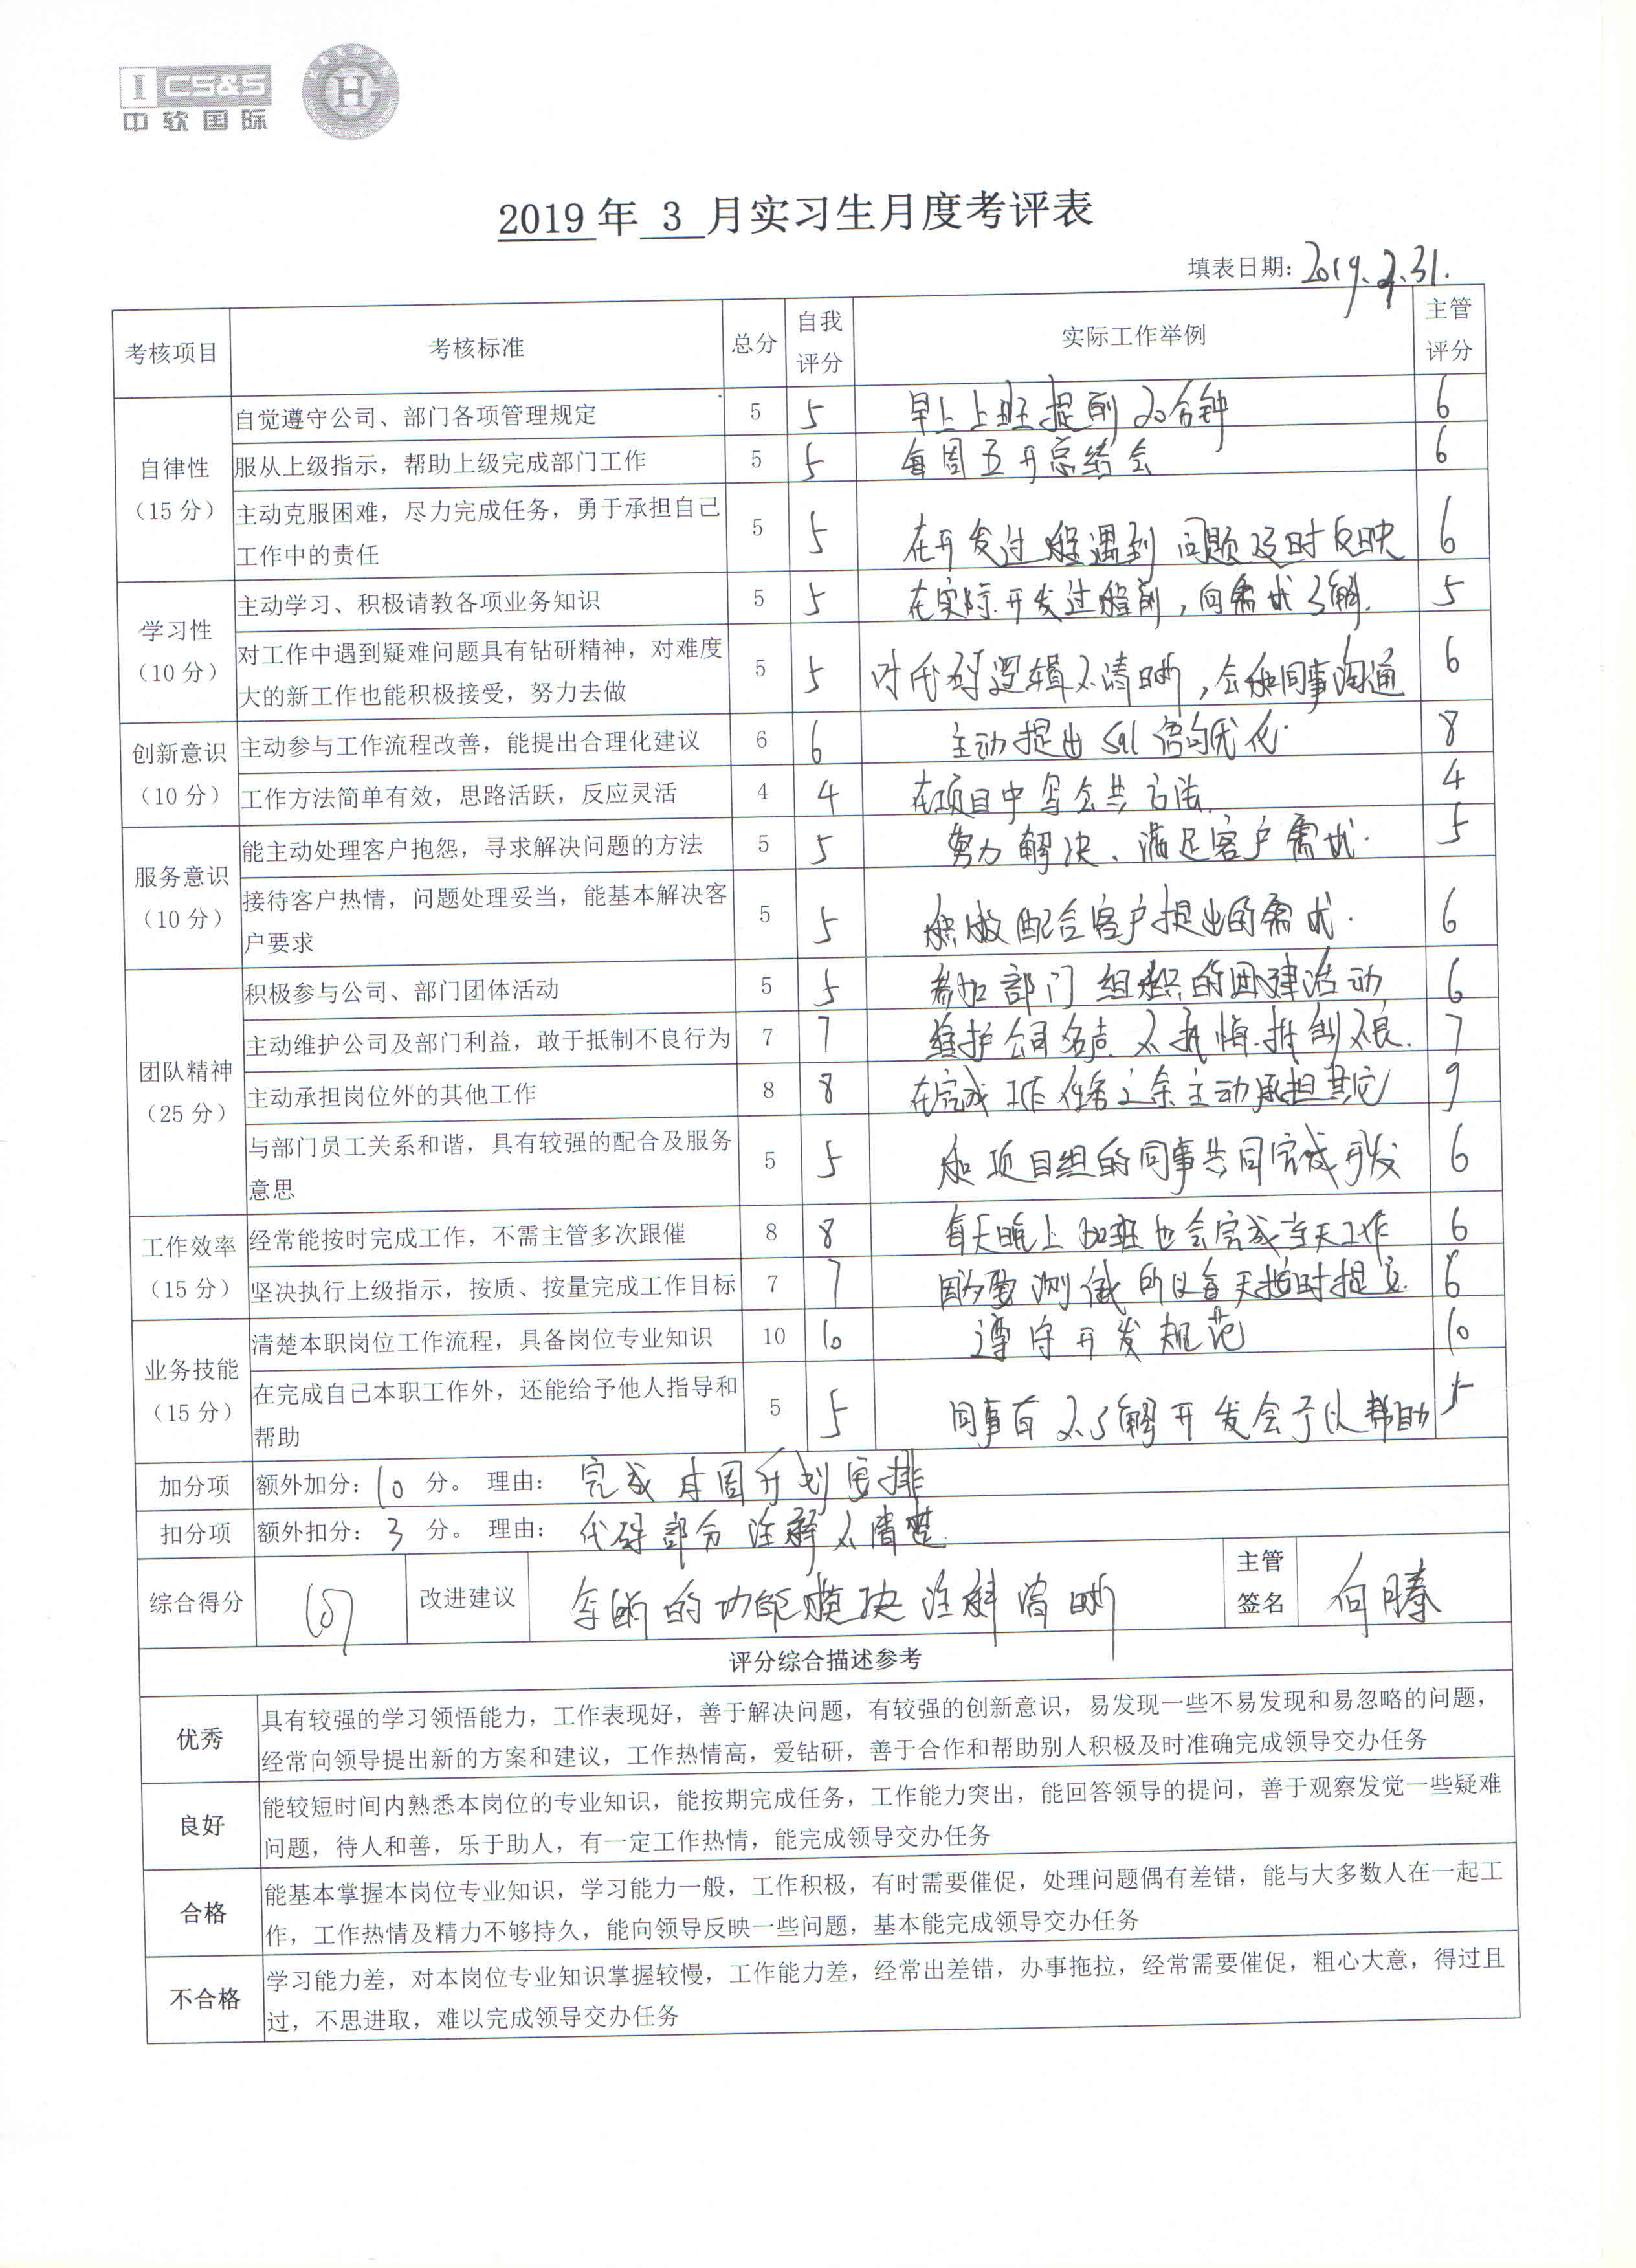 I CS&S
中软国际
HG
2019年 3 月实习生月度考评表
填表日期：2019.3.31.
考核项目 考核标准 总分 自我评分 实际工作举例 主管评分
自律性（15分）
自觉遵守公司、部门各项管理规定 5 5 早上上班提前20分钟 6
服从上级指示，帮助上级完成部门工作 5 5 每周五开总结会 6
主动克服困难，尽力完成任务，勇于承担自己
工作中的责任 5 5 在开发过程遇到问题及时反映 6
学习性（10分）
主动学习、积极请教各项业务知识 5 5 在实际开发过程前，向需求了解. 5
对工作中遇到疑难问题具有钻研精神，对难度
大的新工作也能积极接受，努力去做 5 5 对代码逻辑不清晰，会和同事沟通 6
创新意识（10分）
主动参与工作流程改善，能提出合理化建议 6 6 主动提出sql语句优化. 8
工作方法简单有效，思路活跃，反应灵活 4 4 在项目中写公共方法. 4
服务意识（10分）
能主动处理客户抱怨，寻求解决问题的方法 5 5 努力解决、满足客户需求. 5
接待客户热情，问题处理妥当，能基本解决客
户要求 5 5 积极配合客户提出的需求. 6
团队精神（25分）
积极参与公司、部门团体活动 5 5 参加部门组织的团建活动 6
主动维护公司及部门利益，敢于抵制不良行为 7 7 维护公司名声 7
主动承担岗位外的其他工作 8 8 在完成工作任务之余主动承担其它 9
与部门员工关系和谐，具有较强的配合及服务
意思 5 5 和项目组的同事共同完成开发 6
工作效率（15分）
经常能按时完成工作，不需主管多次跟催 8 8 每天晚上加班也会完成当天工作 6
坚决执行上级指示，按质、按量完成工作目标 7 7 所以每天按时提交. 6
业务技能（15分）
清楚本职岗位工作流程，具备岗位专业知识 10 10 遵守开发规范 10
在完成自己本职工作外，还能给予他人指导和
帮助 5 5 同事有不了解开发会予以帮助 5
加分项 额外加分：10 分。 理由：完成本周计划安排
扣分项 额外扣分：3 分。 理由：代码部分注释不清楚.
综合得分 改进建议 的功能模块注释清晰 主管签名 何腾
评分综合描述参考
优秀 具有较强的学习领悟能力，工作表现好，善于解决问题，有较强的创新意识，易发现一些不易发现和易忽略的问题，
经常向领导提出新的方案和建议，工作热情高，爱钻研，善于合作和帮助别人积极及时准确完成领导交办任务
良好 能较短时间内熟悉本岗位的专业知识，能按期完成任务，工作能力突出，能回答领导的提问，善于观察发觉一些疑难
问题，待人和善，乐于助人，有一定工作热情，能完成领导交办任务
合格 能基本掌握本岗位专业知识，学习能力一般，工作积极，有时需要催促，处理问题偶有差错，能与大多数人在一起工
作，工作热情及精力不够持久，能向领导反映一些问题，基本能完成领导交办任务
不合格 学习能力差，对本岗位专业知识掌握较慢，工作能力差，经常出差错，办事拖拉，经常需要催促，粗心大意，得过且
过，不思进取，难以完成领导交办任务